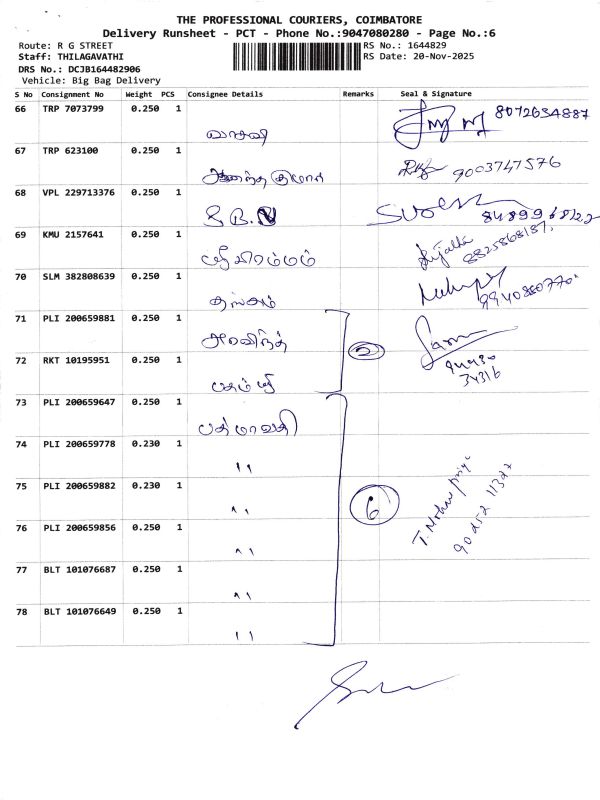 THE PROFESSIONAL COURIERS, COIMBATORE
Delivery Runsheet - PCT - Phone No.:9047080280 - Page No.:6
Route: R G STREET
RS No.: 1644829
Staff: THILAGAVATHI
RS Date: 20-Nov-2025
DRS No.: DCJB164482906
Vehicle: Big Bag Delivery
S No Consignment No Weight PCS Consignee Details Remarks Seal & Signature
66 TRP 7073799 0.250 1 8072634887
67 TRP 623100 0.250 1 9003747576
68 VPL 229713376 0.250 1
69 KMU 2157641 0.250 1
70 SLM 382808639 0.250 1
71 PLI 200659881 0.250 1 அரவிந்த்
72 RKT 10195951 0.250 1
2
73 PLI 200659647 0.250 1 பத்மாவதி
74 PLI 200659778 0.230 1 "
75 PLI 200659882 0.230 1 "
6
76 PLI 200659856 0.250 1 "
77 BLT 101076687 0.250 1 "
78 BLT 101076649 0.250 1 "